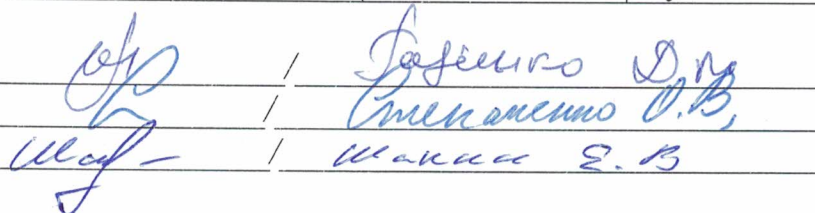 / Гаденко Д.М.
/ Степаненко О.В,
/ Шанин Е.В